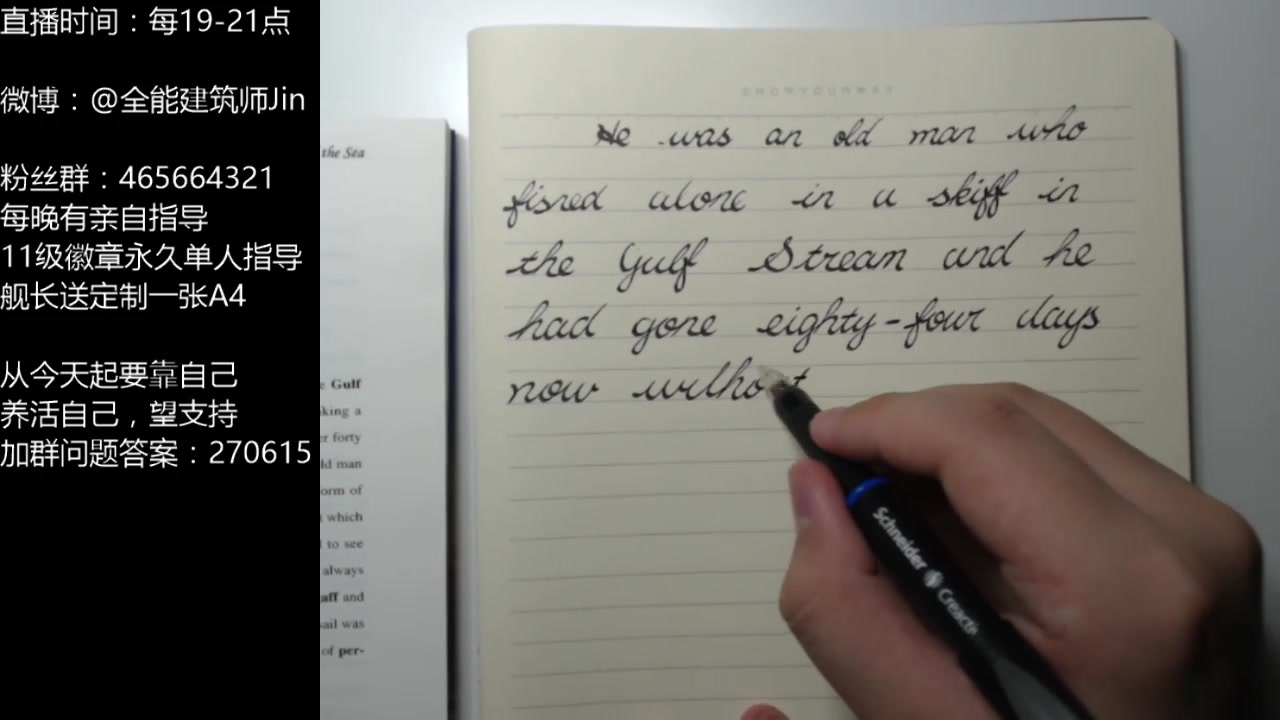 直播时间：每19-21点
微博：@全能建筑师Jin
粉丝群：465664321
每晚有亲自指导
11级徽章永久单人指导
舰长送定制一张A4
从今天起要靠自己
养活自己，望支持
加群问题答案：270615
the Sea
Gulf
king a
forty
ld man
orm of
which
to see
always
aff and
sail was
of per-
SHOWYOURWAY
He was an old man who
fished alone in a skiff in
the Gulf Stream and he
had gone eighty-four days
now without
Schneider